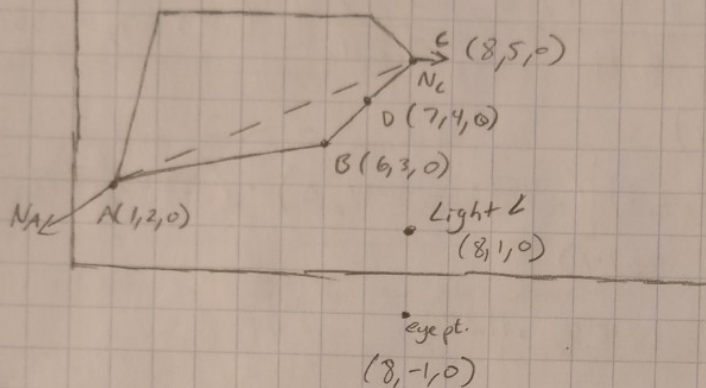 C (8,5,0)
N_C
D (7,4,0)
B (6,3,0)
N_A
A (1,2,0)
Light L
(8,1,0)
eye pt.
(8,-1,0)